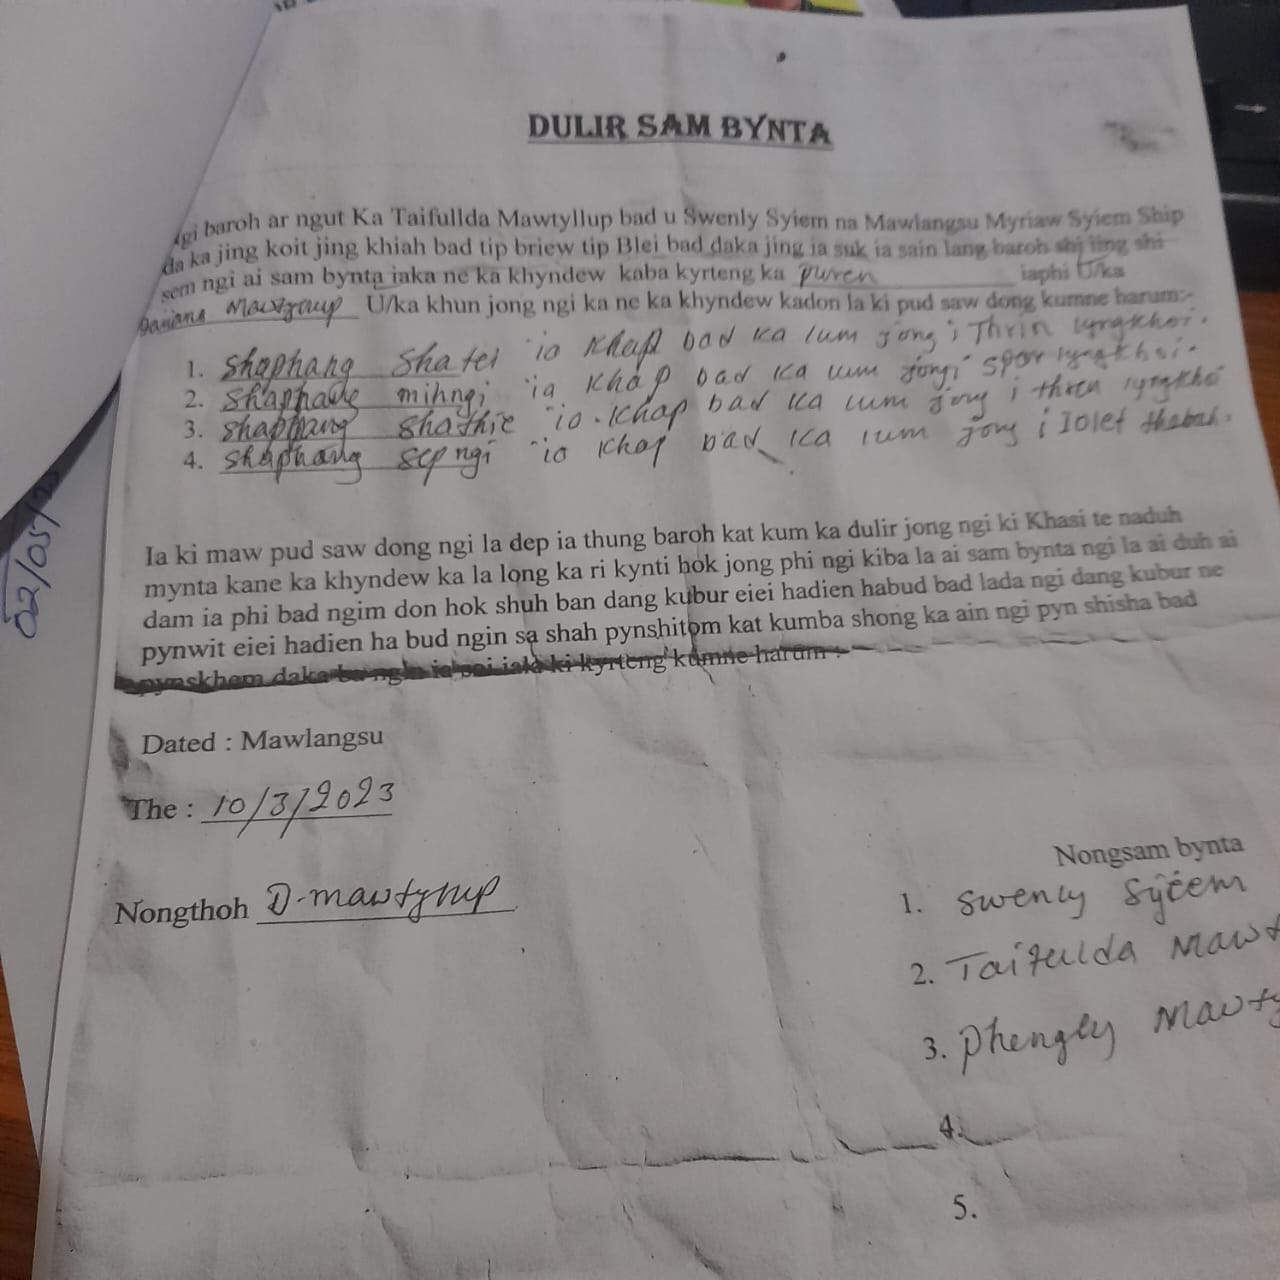 DULIR SAM BYNTA
Ngi baroh ar ngut Ka Taifullda Mawtyllup bad u Swenly Syiem na Mawlangsu Myriaw Syiem Ship
da ka jing koit jing khiah bad tip briew tip Blei bad daka jing ia suk ia sain lang baroh shi iing shi
sem ngi ai sam bynta iaka ne ka khyndew kaba kyrteng ka puren iaphi U/ka
U/ka khun jong ngi ka ne ka khyndew kadon la ki pud saw dong kumne harum:-
1. Shaphang Shatei ia khap bad ka lum jong i Thrin lyngkhoi.
2. Shaphang mihngi ia khap bad ka lum jongi spor lyngkhoi.
3. shaphang shathie ia khap bad ka lum jong i thren lyngkhoi
4. shaphang sepngi ia khap bad ka lum jong i Iolet thabah.
Ia ki maw pud saw dong ngi la dep ia thung baroh kat kum ka dulir jong ngi ki Khasi te naduh
mynta kane ka khyndew ka la long ka ri kynti hok jong phi ngi kiba la ai sam bynta ngi la ai duh ai
dam ia phi bad ngim don hok shuh ban dang kubur eiei hadien habud bad lada ngi dang kubur ne
pynwit eiei hadien ha bud ngin sa shah pynshitom kat kumba shong ka ain ngi pyn shisha bad
pynskhem daka ba ngin ia soi iala ki kyrteng kumne harum :-
Dated : Mawlangsu
The : 10/3/2023
Nongthoh D-mawtyllup
Nongsam bynta
1. Swenly Syiem
2. Taifulda
3. Phengly
4.
5.
02/05/2